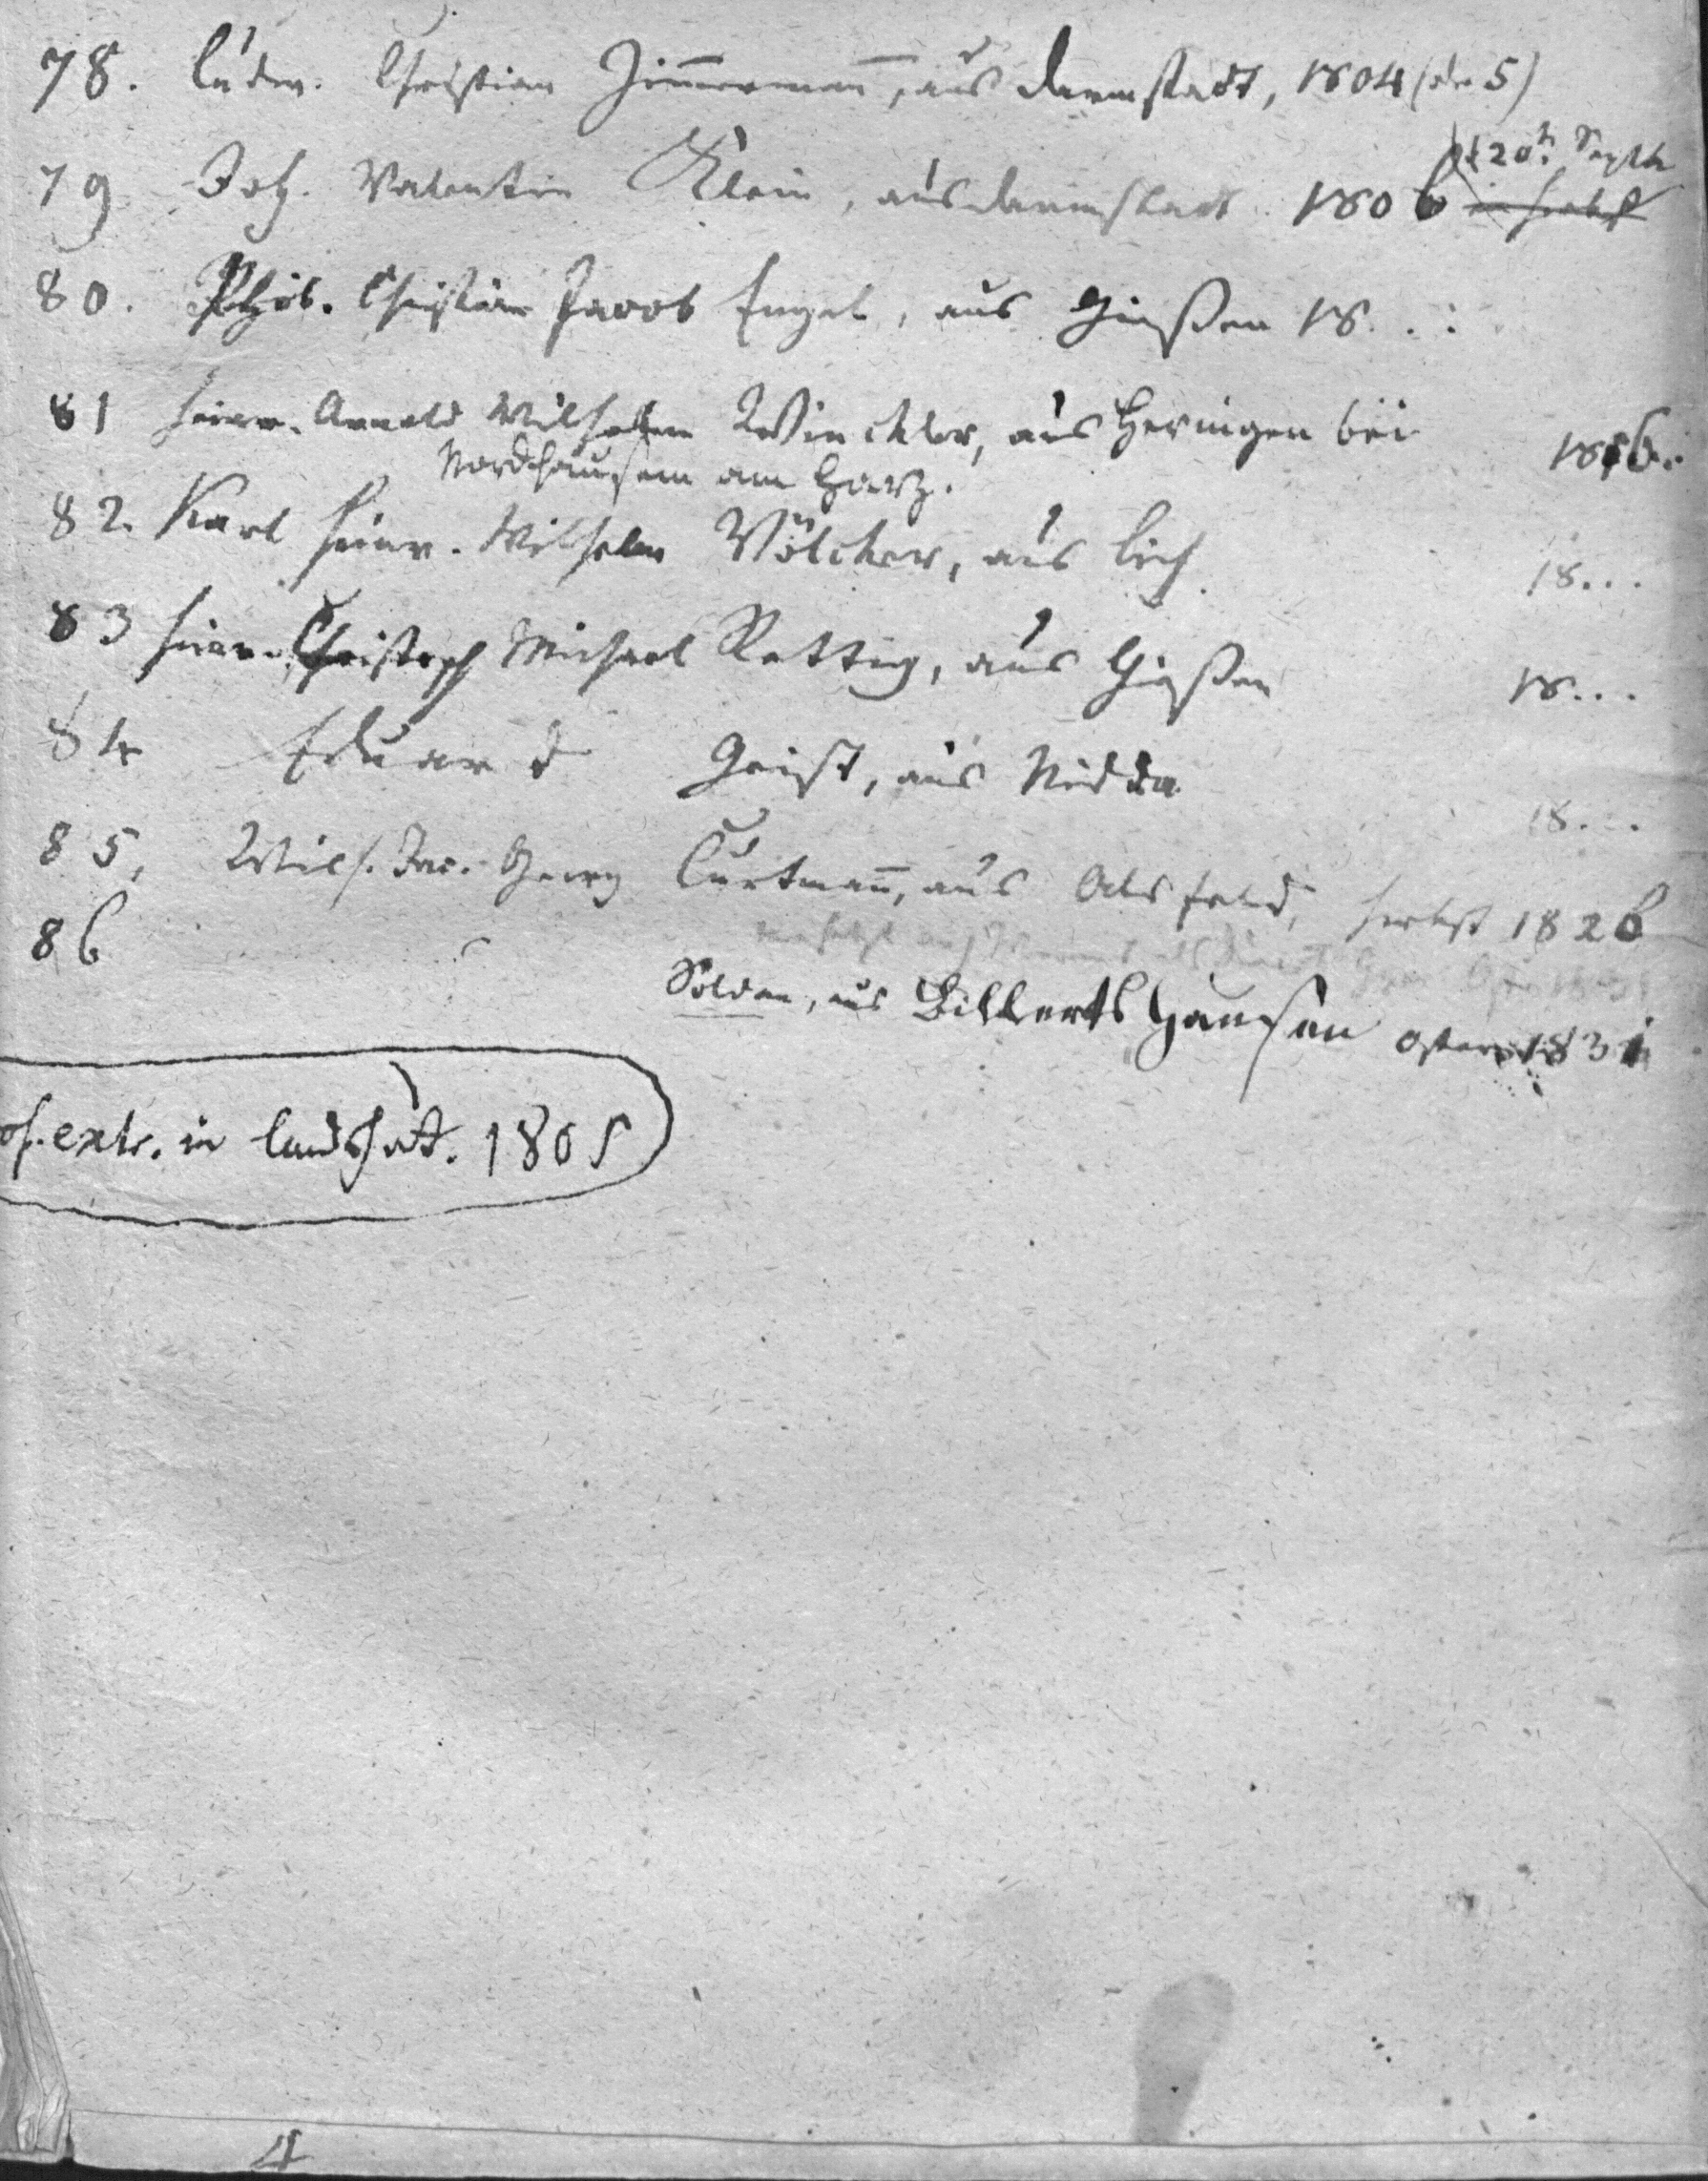 78. Ludw. Christian Zim̅ermann̅, aus Darmstadt, 1804 (oder 5)
d 20t. Septb
79 Joh. Valentin Klein, aus Darmstadt 1806 im Herbst
80. Phil. Christian Jacob Engel, aus Gießen 18...
81 Heinr. Arnold Wilhelm Winckler, aus Heringen bei 1816.
Nordhausen am Harz.
82. Karl Heinr. Wilhelm Völcker, aus Lich. 18...
83 Heinr. Christoph Michael Rettig, aus Gießen 18...
84 Eduard Geist, aus Nidda 18...
85, Wilh. Jac. Georg Curtman̅, aus Alsfeld, Herbst 1826
versetzt nach Worms als
86 Soldan, aus Billertshausen Ostern 1831
of. extr. in Landshut. 1805
4